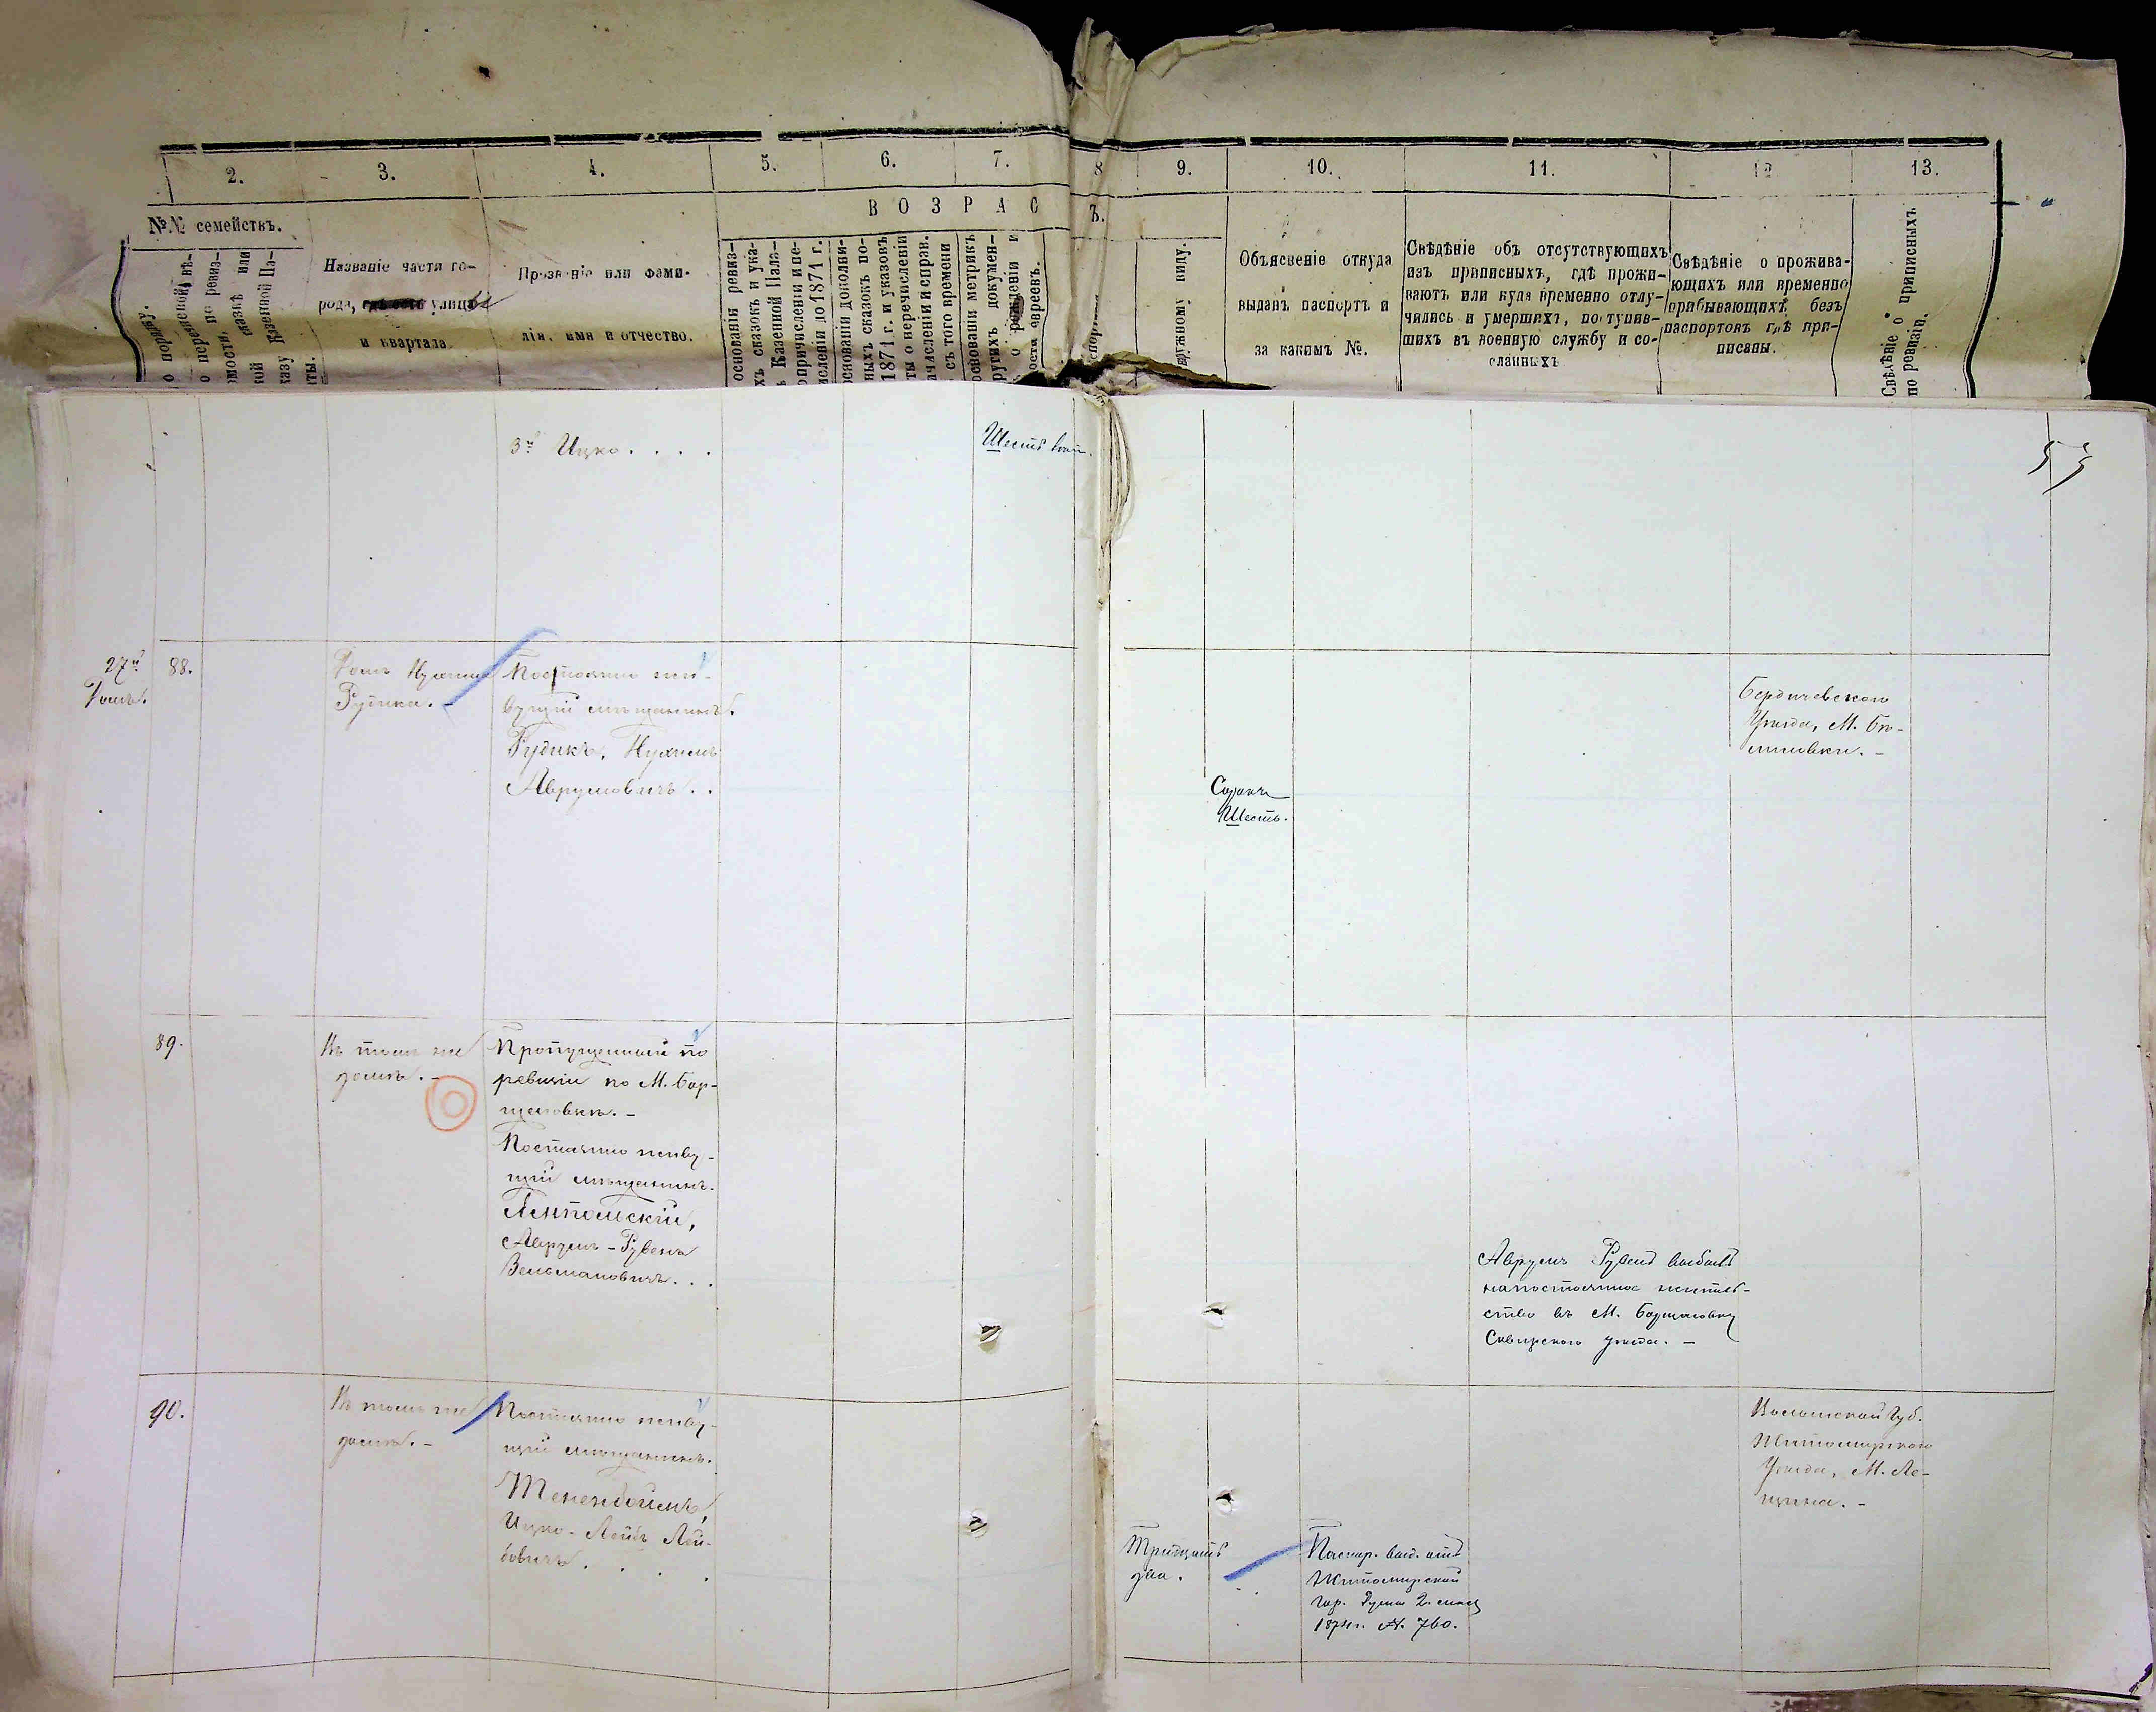 2.
3.
4.
5.
6.
7.
8
9.
10.
11.
12
13.
ВОЗРАС
Ъ.
№№ семействъ.
о порядку.
по ревиз-
сказкѣ или
Казенной Па-
Названіе части го-
рода, гдѣ есть улицы
и квартала.
Прозваніе или фами-
лія, имя и отчество.
основаніи ревиз-
хъ сказокъ и ука-
ъ Казенной Пала-
о причисленіи и пе-
исленіи до 1871 г.
основаніи дополни-
ныхъ сказокъ по-
1871 г. и указовъ
ты о перечисленіи
ачисленіи и справ.
съ того времени
основаніи метрикъ
ругихъ докумен-
о рожденіи и
ости евреевъ.
аружному виду.
Объясненіе откуда
выданъ паспортъ и
за какимъ №.
Свѣдѣніе объ отсутствующихъ
изъ приписныхъ, гдѣ прожи-
ваютъ или куда временно отлу-
чились и умершихъ, поступив-
шихъ въ военную службу и со-
сланныхъ
Свѣдѣніе о прожива-
ющихъ или временно
прибывающихъ безъ
паспортовъ гдѣ при-
писаны.
Свѣдѣніе о приписныхъ
по ревизіи.
3й Ицко . . . .
Шесть
27й
домъ.
88.
Домъ Нухима
Рудика. -
Постоянно жи-
вущій мѣщанинъ.
Рудикъ, Нухимъ
Аврумовичъ . .
Сорокъ
Шесть.
Бердичевскаго
Уѣзда, М. Бѣ-
лиловки. -
89.
Въ томъ же
домѣ. -
Пропущенный по
ревизіи по М. Бор-
щаговкѣ. -
Постоянно живу-
щій мѣщанинъ.
Аврумъ-Рувенъ
Вельмановичъ . . .
Аврумъ Рувенъ выбылъ
на постоянное житель-
ство въ М. Борщаговку
Сквирскаго уѣзда. -
90.
Въ томъ же
домѣ. -
Постоянно живу-
щій мѣщанинъ.
Тененбоимъ,
Ицко-Лейбъ Лей-
бовичъ . . . .
Тридцать
два.
Паспор. выд. отъ
Житомирской
Гор. Думы 2. мая
187 г. №. 760.
Волынской Губ.
Житомирскаго
Уѣзда, М. Ле-
щина. -